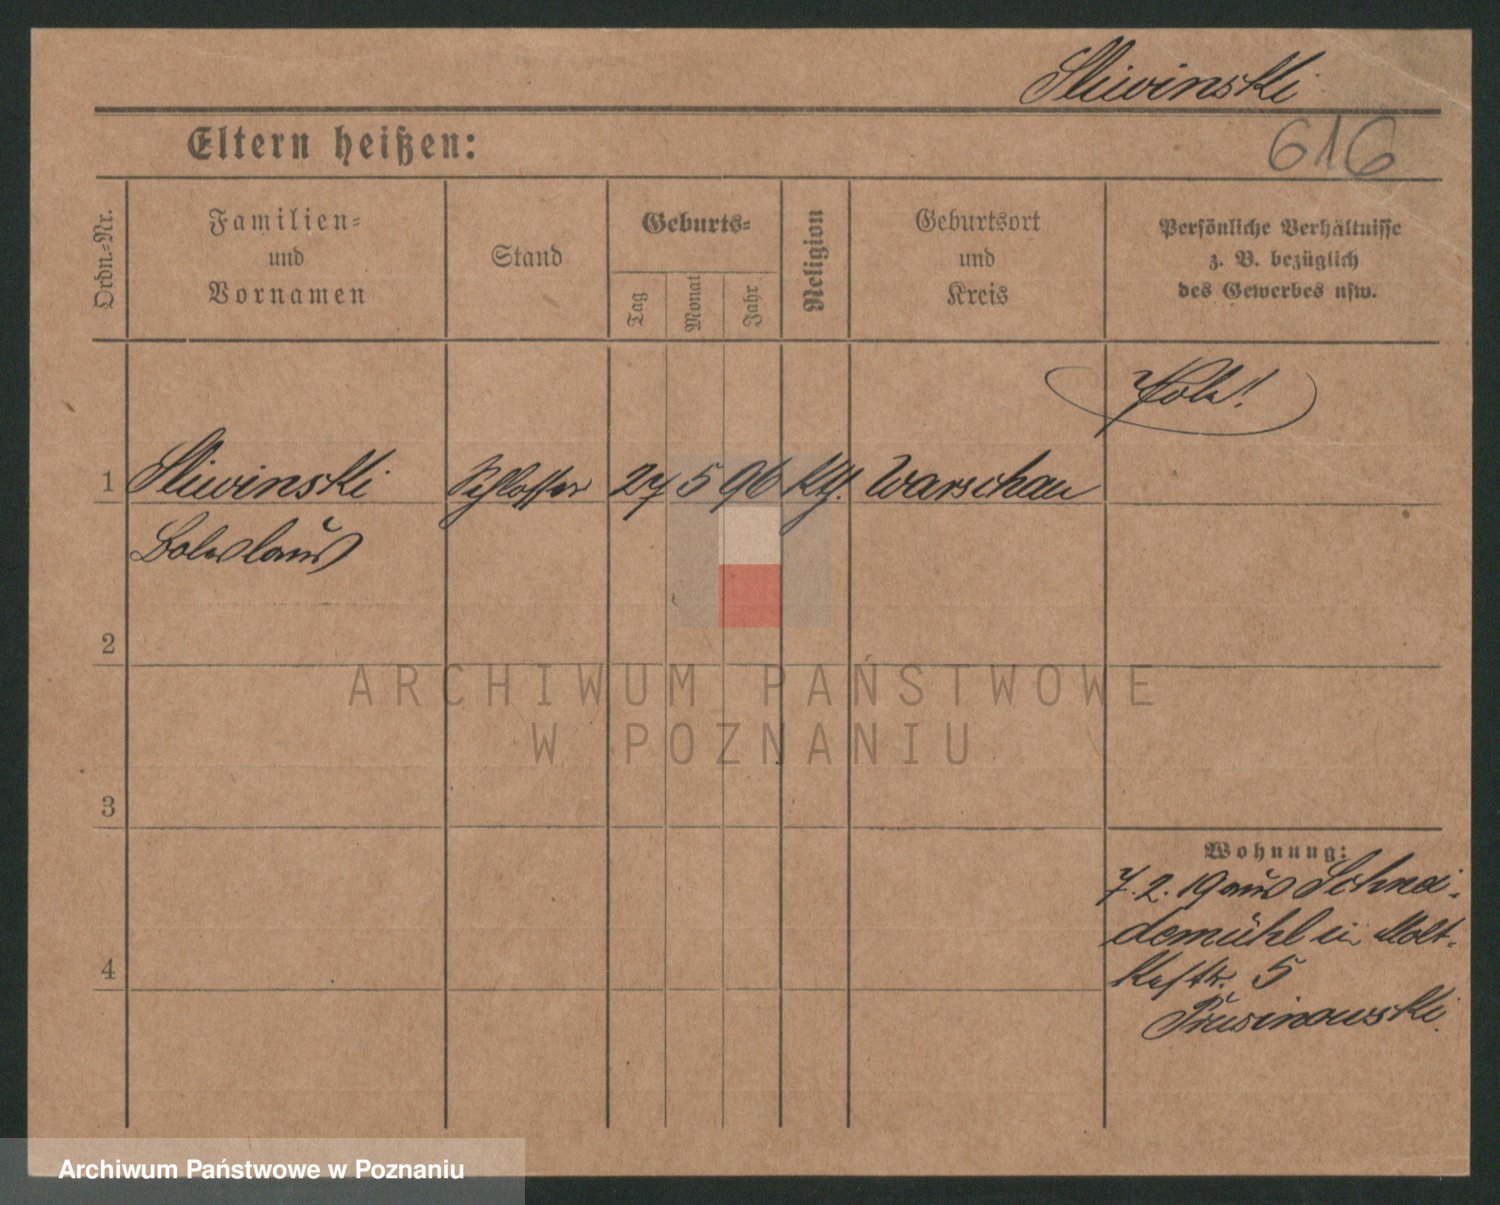 Sliwinski
616
Eltern heißen:
Ordn.-Nr.
Familien-
und
Vornamen
Stand
Geburts-
Tag
Monat
Jahr
Religion
Geburtsort
und
Kreis
Persönliche Verhältnisse
z. B. bezüglich
des Gewerbes usw.
Pole!
1 Sliwinski Schlosser 27 5 96 Kth. Warschau
Boleslaus
2
3
4
Wohnung:
7.2.19 aus Schnei-
demühl in Molt-
kestr. 5
Prusinowski.
ARCHIWUM PAŃSTWOWE
W POZNANIU
Archiwum Państwowe w Poznaniu